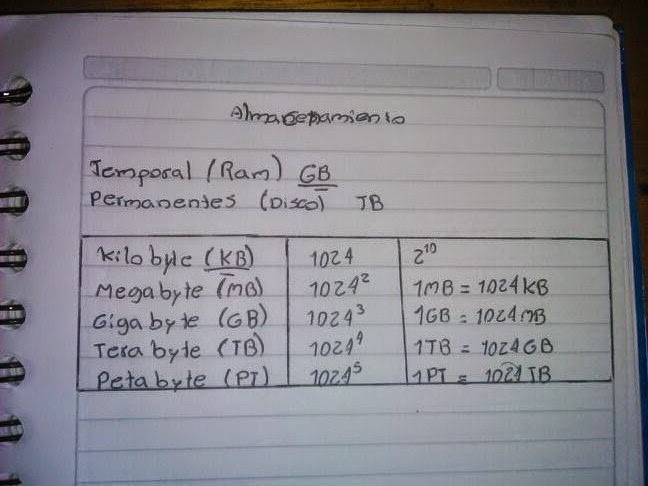 Almacenamiento
Temporal (Ram) GB
Permanentes (Disco) TB
Kilobyte (KB) 1024 2¹⁰
Megabyte (MB) 1024² 1MB = 1024KB
Gigabyte (GB) 1024³ 1GB = 1024MB
Terabyte (TB) 1024⁴ 1TB = 1024GB
Petabyte (PT) 1024⁵ 1PT = 1024TB